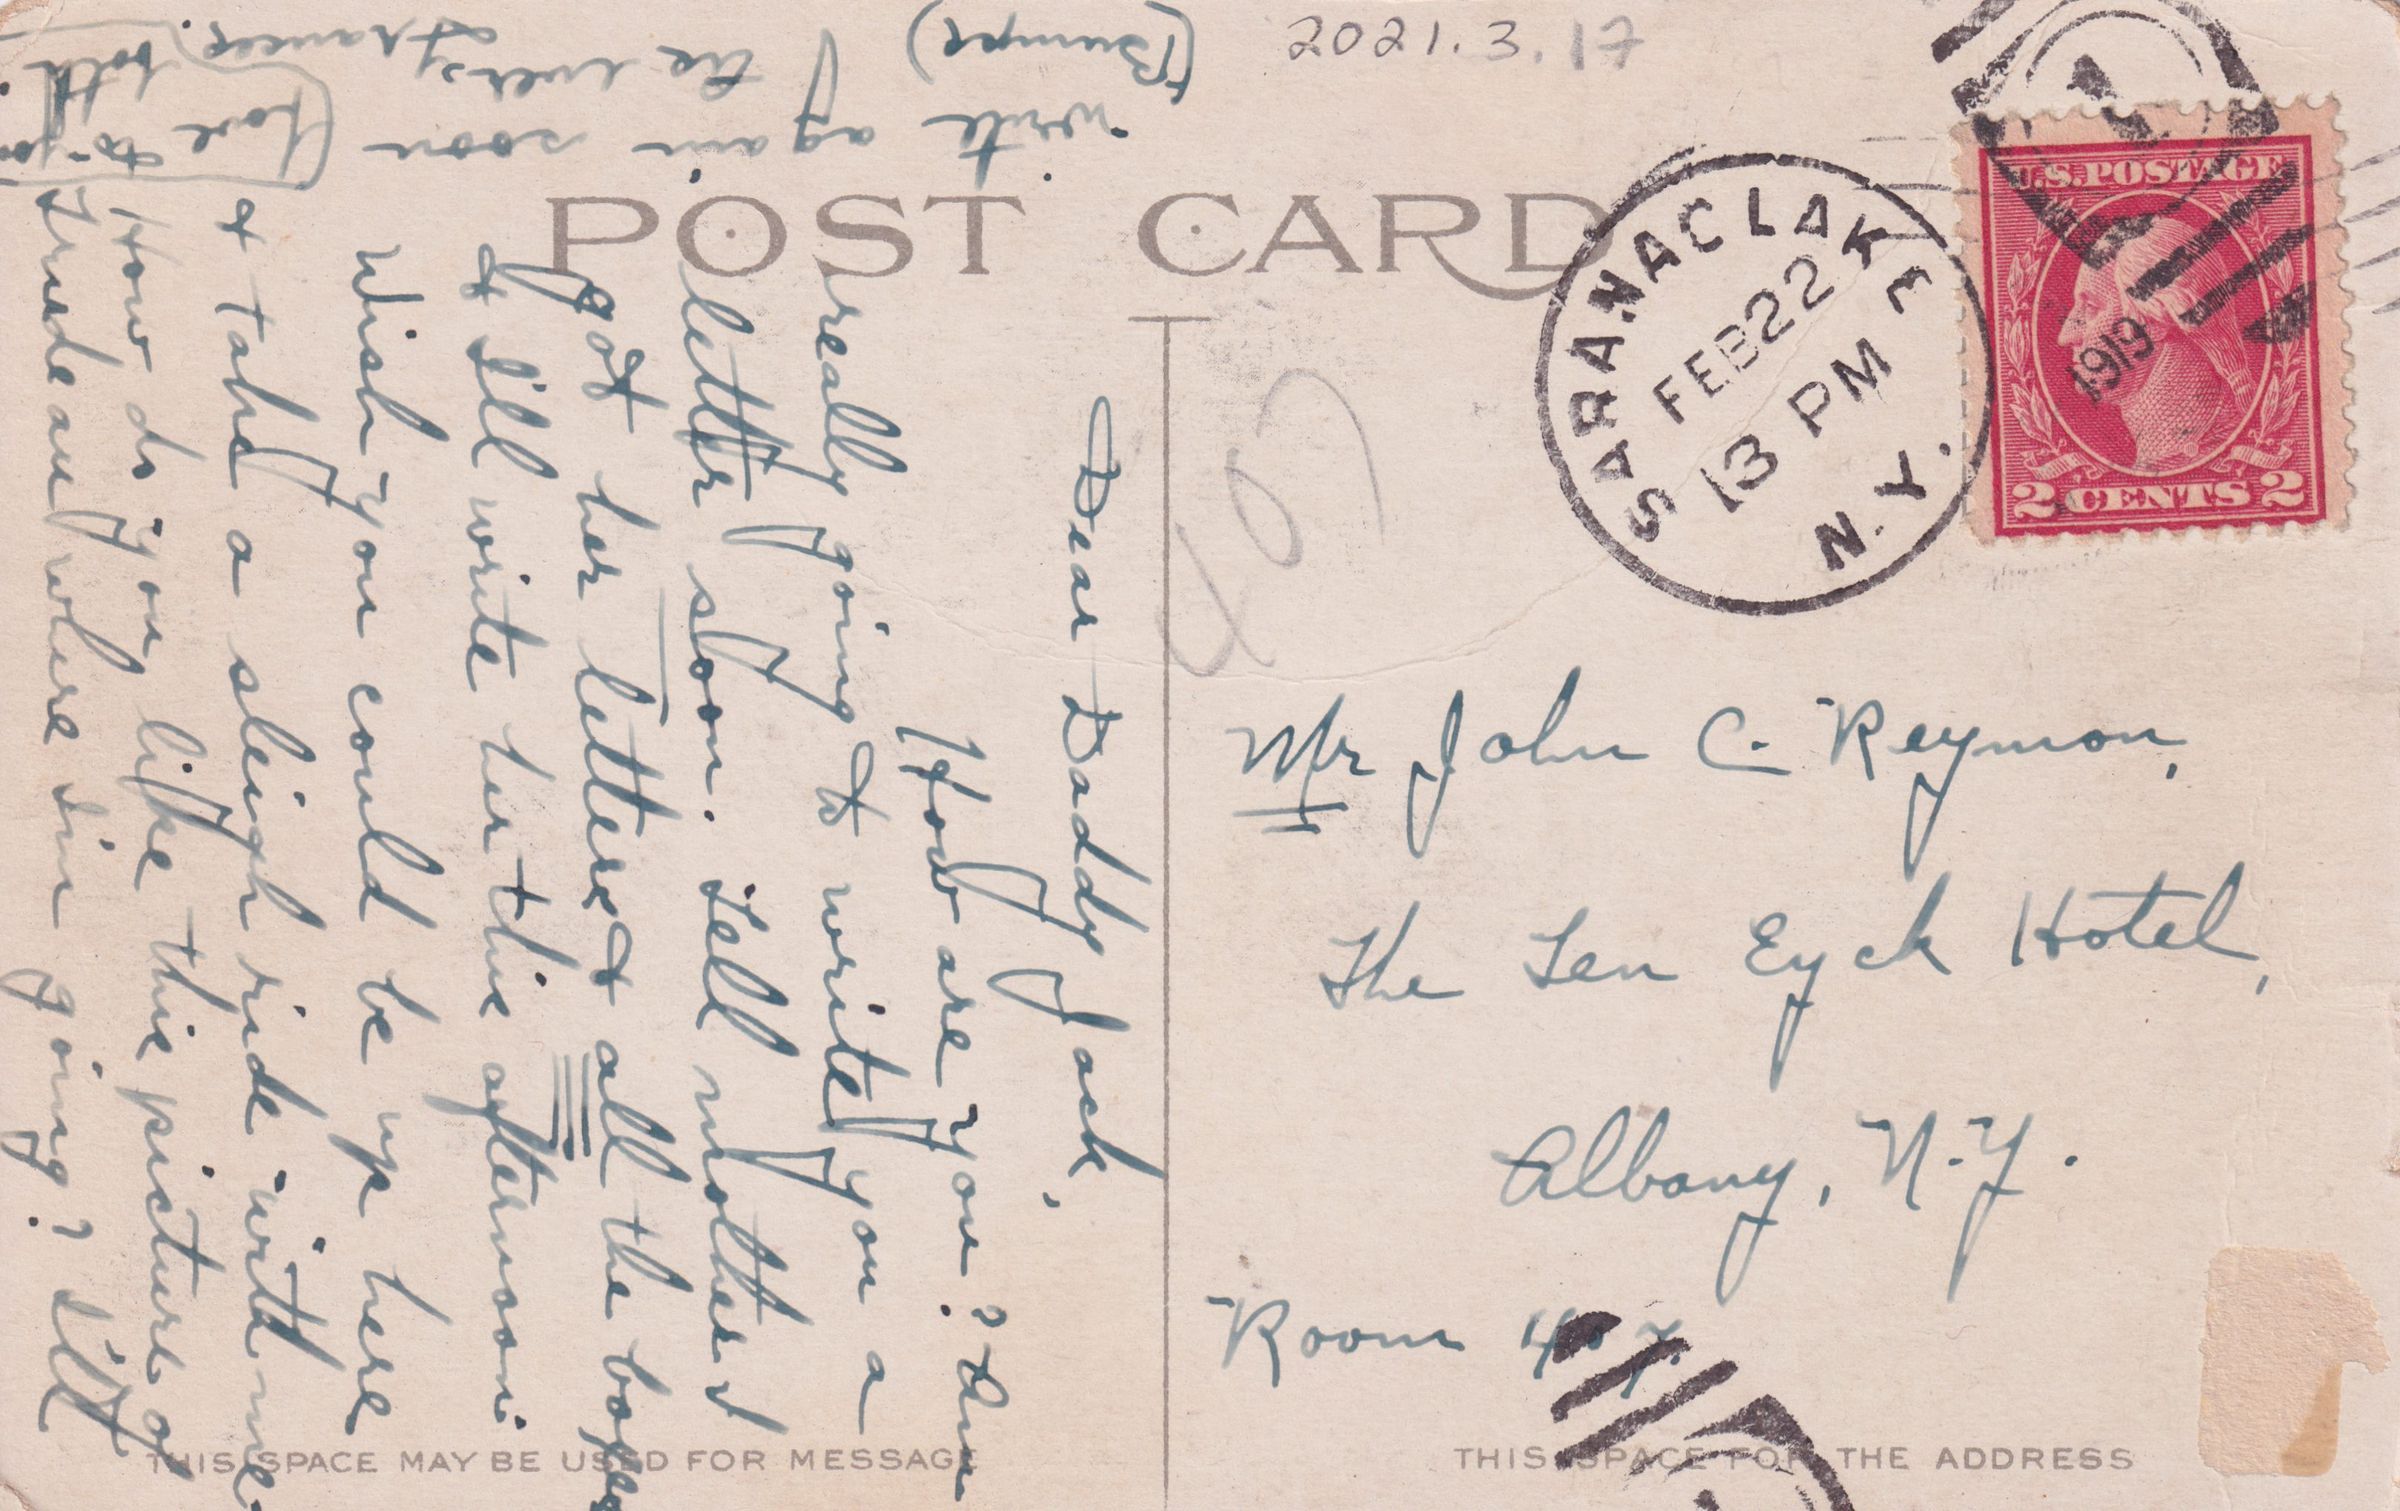 2021.3.17
POST CARD
SARANAC LAKE
FEB 22
13 PM
N.Y.
1919
U.S. POSTAGE
2 CENTS 2
Dear Daddy Jack,
How are you? Am
really going to write you a
letter soon. Tell mother I
got her letters & all the boxes
& I'll write her this afternoon.
Wish you could be up here
& take a sleigh ride with me.
How do you like this picture of
Trudeau where I'm going? I'll
write again soon
Love to you both.
Frances.
(Bumps)
Mr John C. Reymon,
The Ten Eyck Hotel,
Albany, N.Y.
Room
THIS SPACE MAY BE USED FOR MESSAGE
THIS SPACE FOR THE ADDRESS